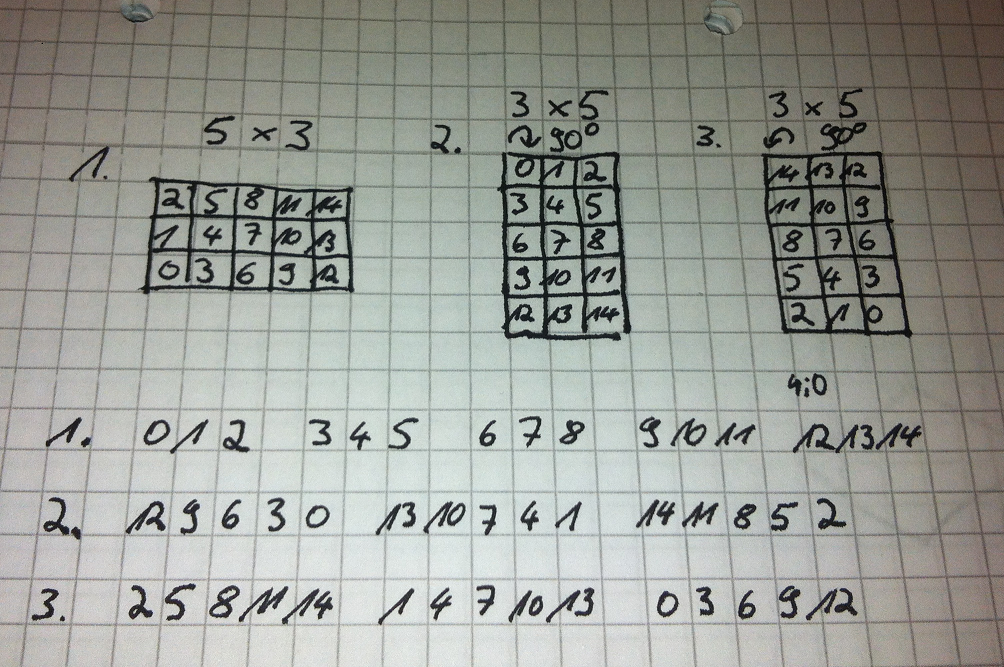 5 x 3
1.
2 5 8 11 14
1 4 7 10 13
0 3 6 9 12
3 x 5
2. ↷ 90°
0 1 2
3 4 5
6 7 8
9 10 11
12 13 14
3 x 5
3. ↶ 90°
14 13 12
11 10 9
8 7 6
5 4 3
2 1 0
4;0
1. 0 1 2 3 4 5 6 7 8 9 10 11 12 13 14
2. 12 9 6 3 0 13 10 7 4 1 14 11 8 5 2
3. 2 5 8 11 14 1 4 7 10 13 0 3 6 9 12